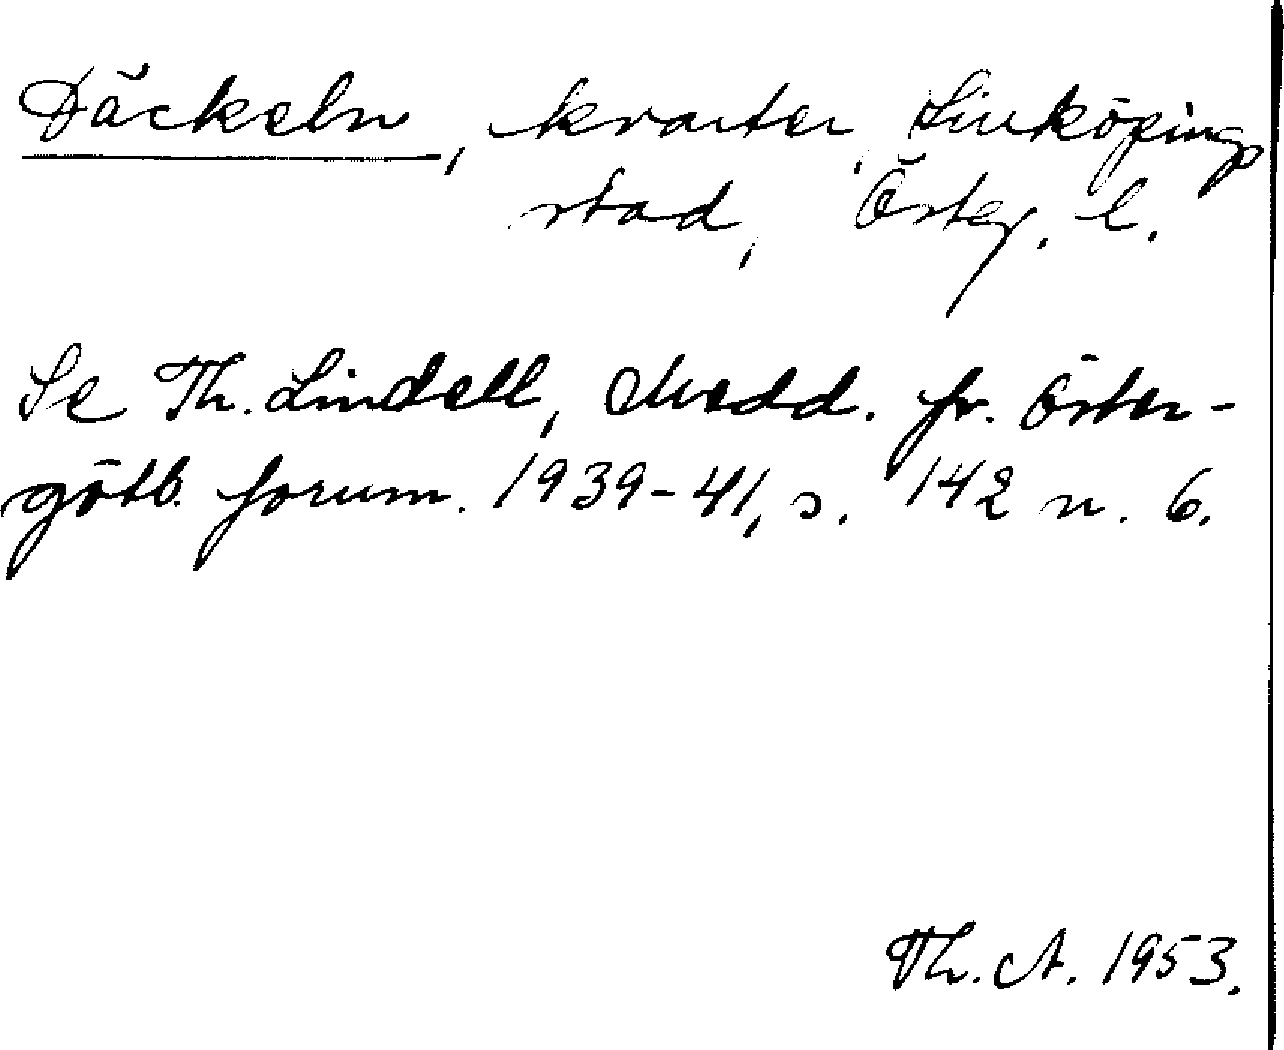 Däckeln, kvarter, Linköpings
stad, Österg. l.
Se Th. Lindell, Medd. fr. Öster-
götl. fornm. 1939-41, s. 142 n. 6.
Th. A. 1953.